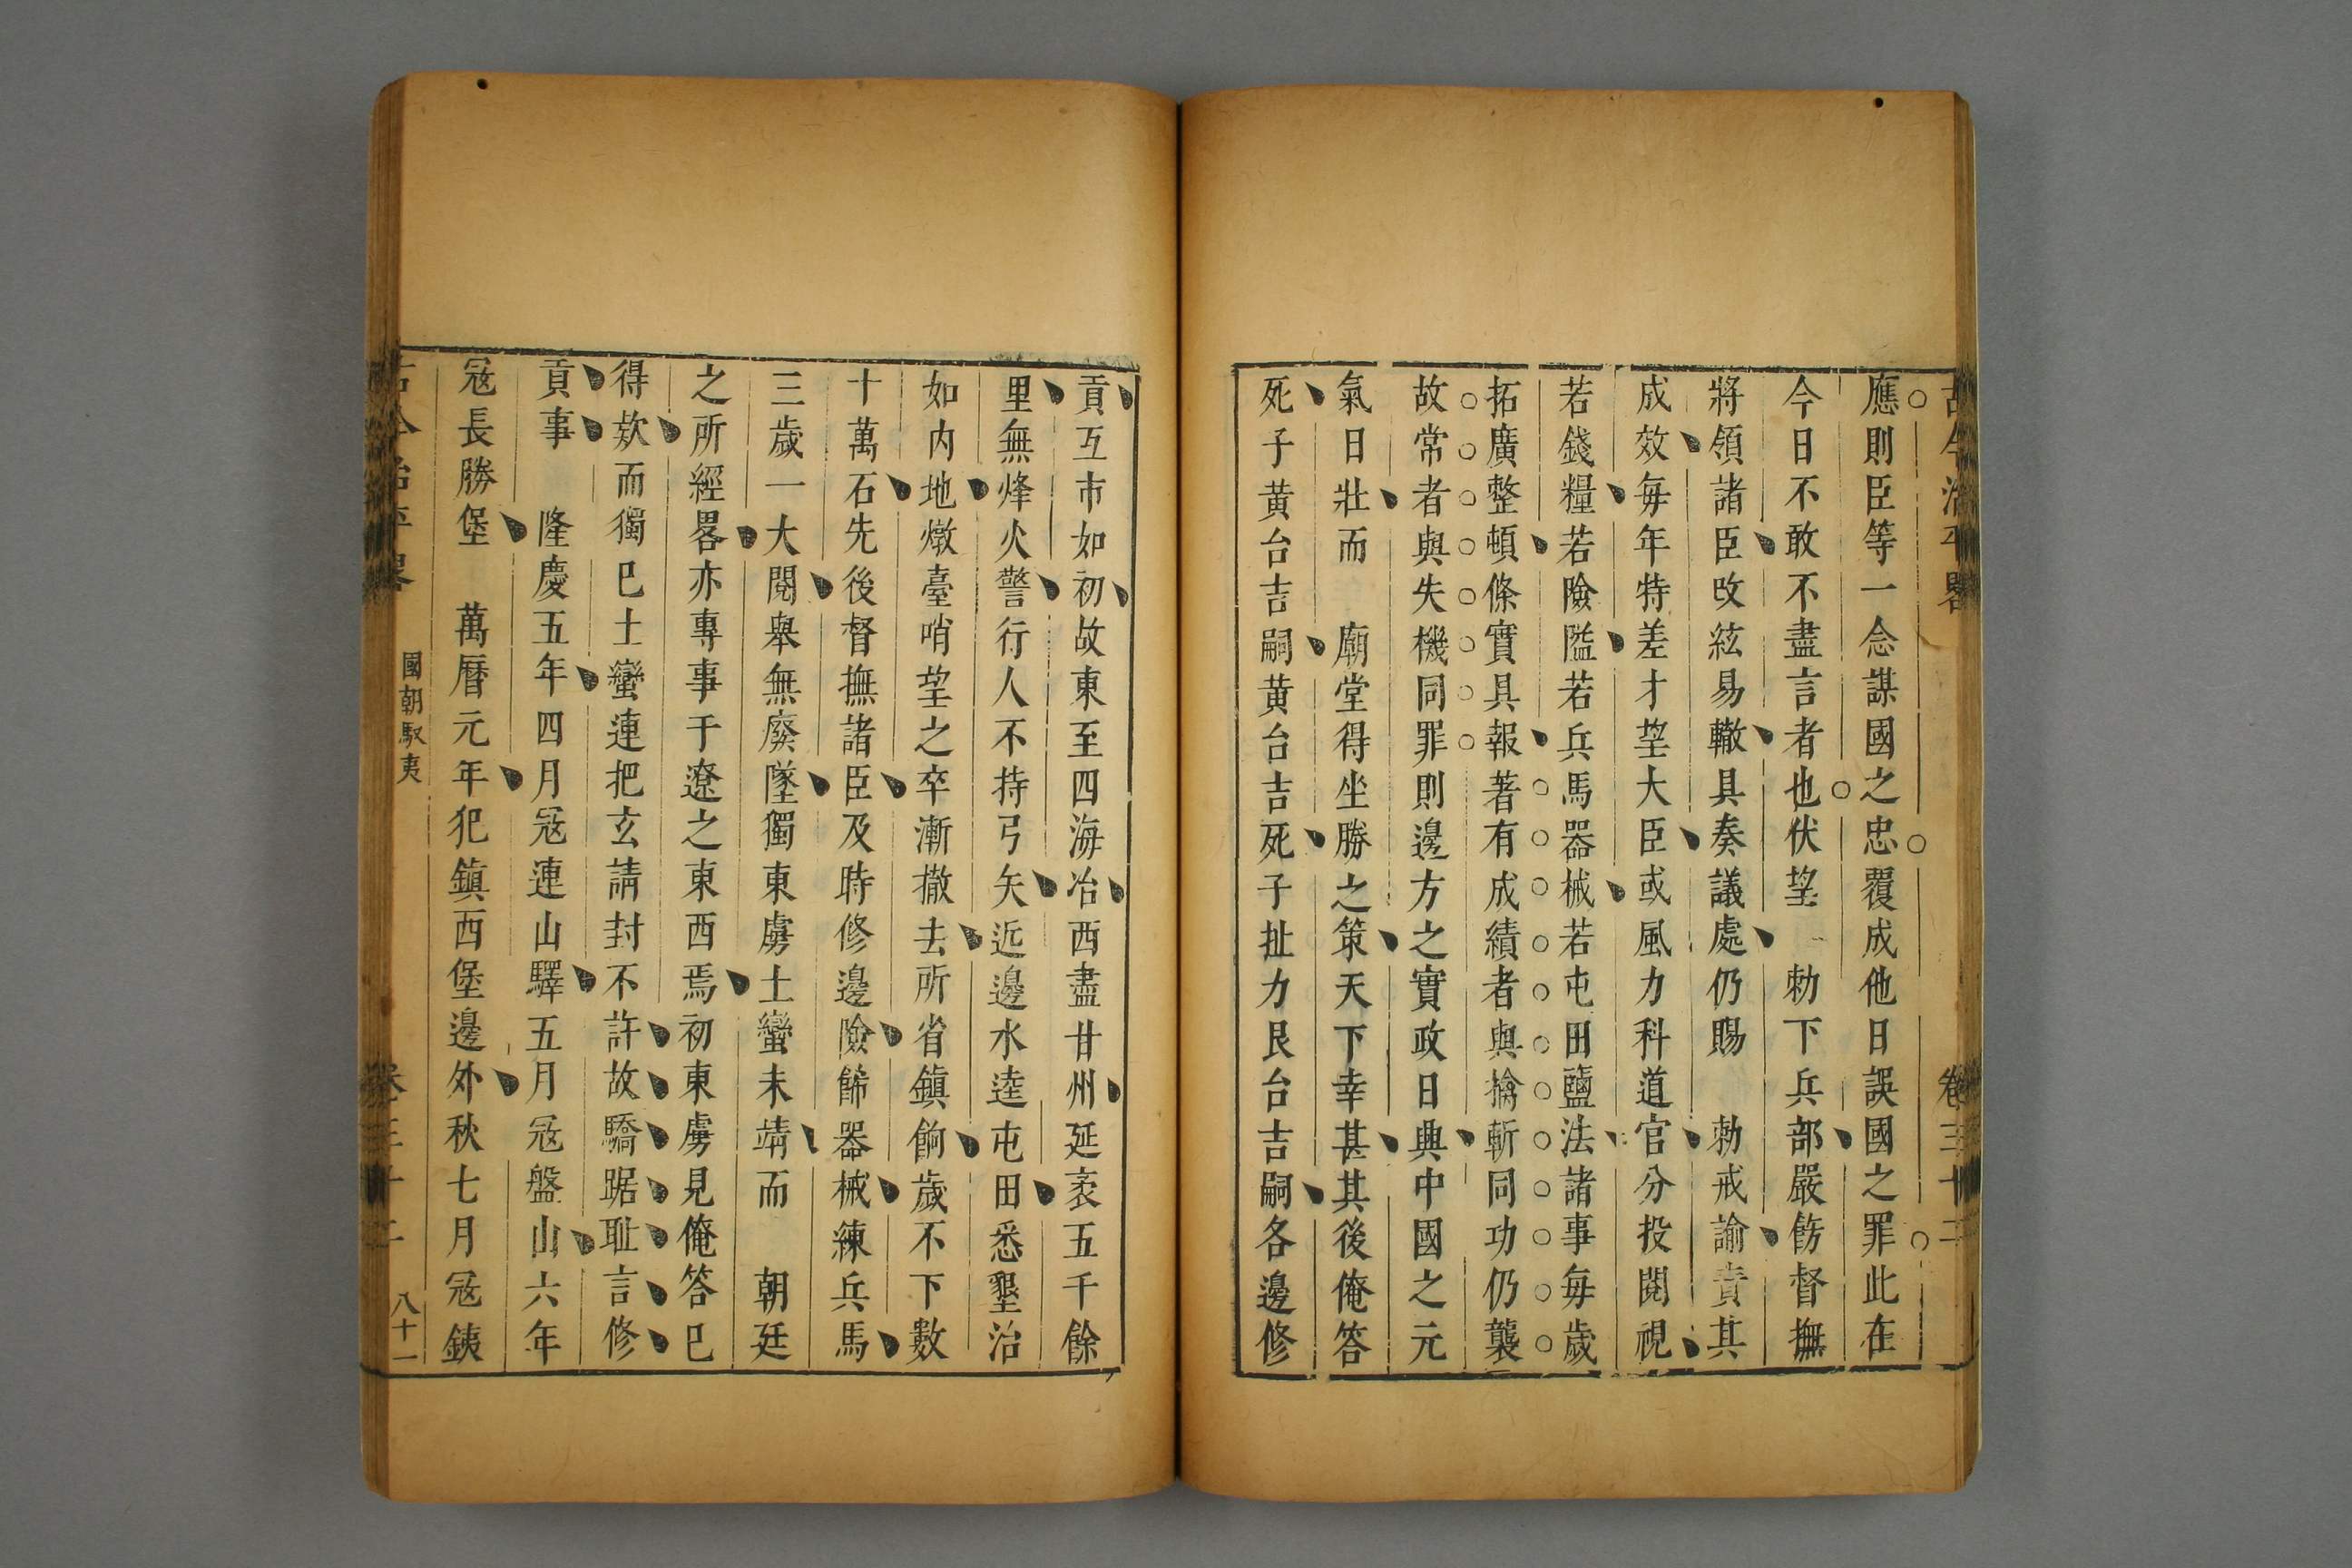 古今治平畧 卷三十二
應則臣等一念謀國之忠覆成他日誤國之罪此在
今日不敢不盡言者也伏望 勅下兵部嚴飭督撫
將領諸臣改絃易轍具奏議處仍賜 勅戒諭責其
成效每年特差才望大臣或風力科道官分投閱視
若錢糧若險隘若兵馬器械若屯田鹽法諸事每歲
拓廣整頓條實具報著有成績者與擒斬同功仍襲
故常者與失機同罪則邊方之實政日典中國之元
氣日壯而 廟堂得坐勝之策天下幸甚其後俺答
死子黄台吉嗣黄台吉死子扯力艮台吉嗣各邊修
貢互市如初故東至四海冶西盡甘州延袤五千餘
里無烽火警行人不持弓矢近邊水逵屯田悉墾治
如内地燉臺哨望之卒漸撤去所省鎮餉歲不下數
十萬石先後督撫諸臣及時修邊險飾器械練兵馬
三歲一大閱舉無廢墜獨東虜土蠻未靖而 朝廷
之所經畧亦專事于遼之東西焉初東虜見俺答已
得欵而獨巳土蠻連把玄請封不許故驕踞耻言修
貢事 隆慶五年四月寇連山驛五月寇盤山六年
寇長勝堡 萬曆元年犯鎮西堡邊外秋七月寇鐵
古今治平畧 國朝馭夷 卷三十二 八十一